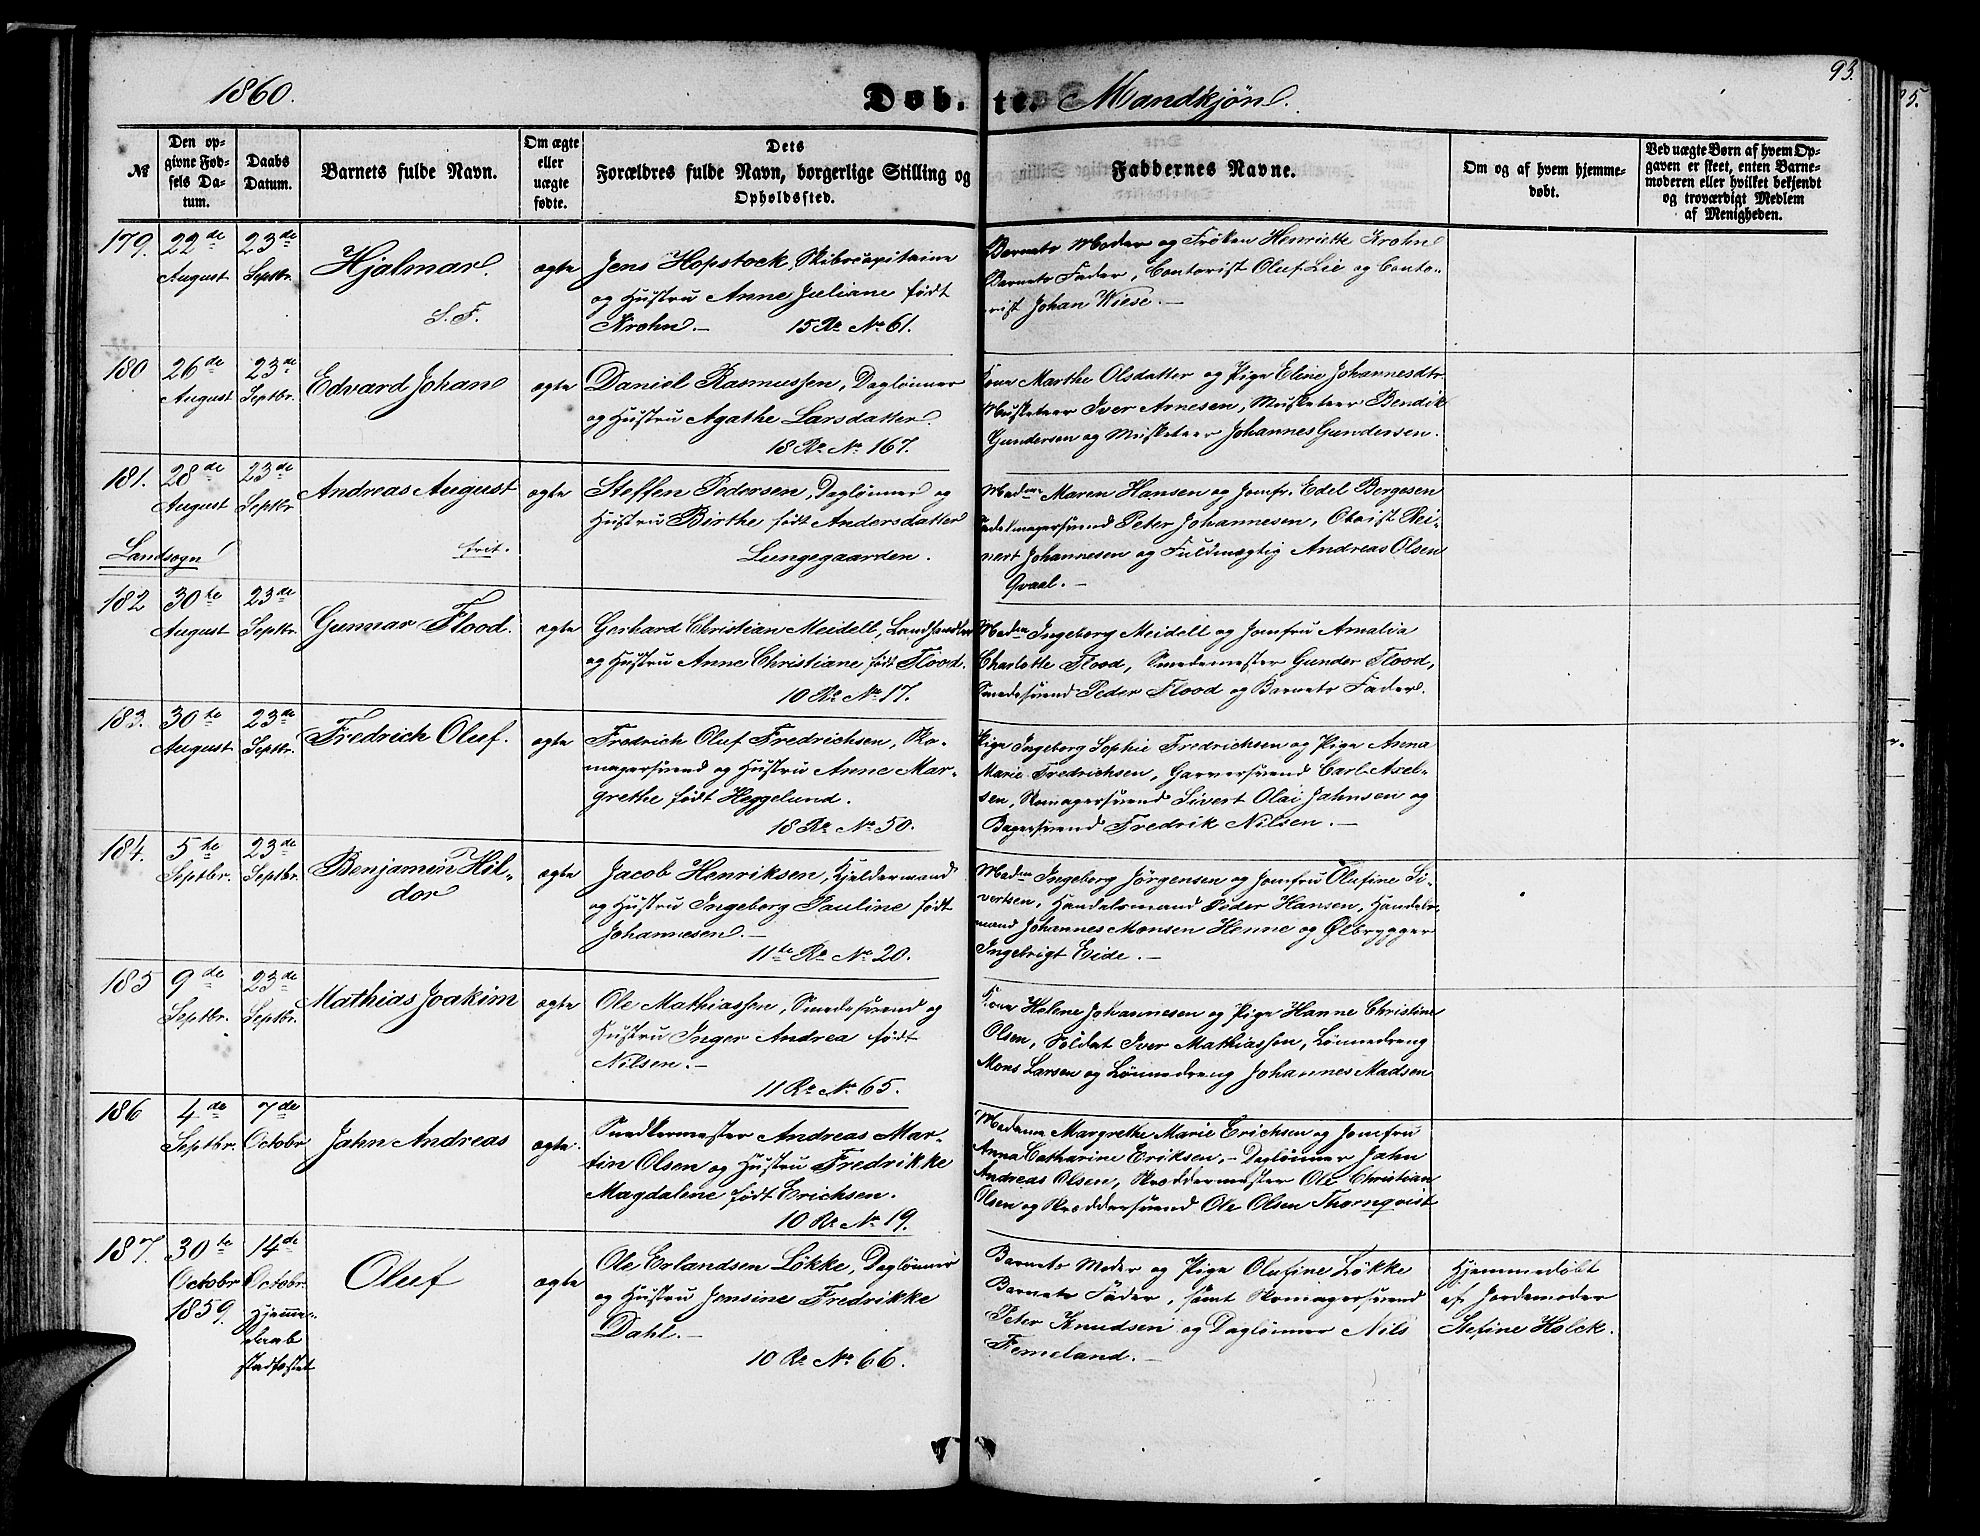 1860.
Døbte. Mandkjøn.
93.
№
Den opgivne Fødsels Datum.
Daabs Datum.
Barnets fulde Navn.
Om ægte eller uægte fødte.
Dets Forældres fulde Navn, borgerlige Stilling og Opholdssted.
Faddernes Navne.
Om og af hvem hjemmedøbt.
Ved uægte Børn af hvem Opgaven er skeet, enten Barnemoderen eller hvilket bekjendt og troværdigt Medlem af Menigheden.
179. 22de August 23de Septbr. Hjalmar. S. F. ægte
Jens Hopstock, Skibscapitaine
og Hustru Anne Juliane født
Krohn.— 15 Re No 61.
Barnets Moder og Frøken Henriette Krohn
Barnets Fader, Contorist Oluf Lie og Conto-
rist Johan Wiese.—
180 26de August 23de Septbr. Edvard Johan ægte
Daniel Rasmussen, Daglønner
og Hustru Agathe Larsdatter.
18 Re No 167.
Kone Marthe Olsdatter og Pige Eline Johannesdtr
Musketeer Iver Arnesen, Musketeer Bendik
Gundersen og Musketeer Johannes Gundersen.
181. 28de August 23de Septbr Andreas August frit. ægte
Landsogn!
Steffen Pedersen, Daglønner og
Hustru Birthe født Andersdatter
Lungegaarden.
Madme Maren Hansen og Jomfr. Edel Børgesen
Sadelmagersvend Peter Johannesen, Rei-
nert Johannesen og Fuldmægtig Andreas Olsen
Qvaal.—
182 30te August 23de Septbr. Gunnar Flood. ægte
Gerhard Christian Meidell, Landhandler
og Hustru Anne Christiane født Flood.
10 Re No 17.
Madme Ingeborg Meidell og Jomfru Amalia
Charlotte Flood, Smedemester Gunder Flood,
Smedesvend Peder Flood og Barnets Fader.
183. 30te August 23de Septbr. Fredrich Oluf. ægte
Fredrich Oluf Fredrichsen, Sko-
magersvend og Hustru Anne Mar-
grethe født Heggelund.
18 Re No 50.
Pige Ingeborg Sophie Fredrichsen og Pige Anna
Marie Fredrichsen, Garversvend Carl Axel-
sen, Skomagersvend Sivert Olai Jahnsen og
Bagersvend Fredrik Nilsen.—
184. 5te Septbr. 23de Septbr. Benjamin Hil-
dor ægte
Jacob Henriksen, Kjeldermand
og Hustru Ingeborg Pauline født
Johannesen.—
11te Re No 20.
Madme Ingeborg Jørgensen og Jomfru Olufine Si-
vertsen, Handelsmand Peder Hansen, Handels-
mand Johannes Monsen Henne og Ølbrygger
Ingebrigt Eide.—
185 9de Septbr. 23de Septbr. Mathias Joakim ægte
Ole Mathiassen, Smedesvend og
Hustru Inger Andrea født
Nilsen.—
11 Re No 65.
Kone Helene Johannesen og Pige Hanne Christine
Olsen, Soldat Iver Mathiassen, Lønnedreng
Mons Larsen og Lønnedreng Johannes Madsen
186 4de Septbr. 7de Octobr Jahn Andreas ægte.
Snedkermester Andreas Mar-
tin Olsen og Hustru Fredrikke
Magdalene født Erichsen.
10 Re No 19.
Madame Margrethe Marie Erichsen og Jomfru
Anna Catharine Eriksen,— Daglønner Jahn
Andreas Olsen, Skreddermester Ole Christian
Olsen og Skreddersvend Ole Olsen Thornqvist
187. 30te Octobr 1859. 14de Octobr. Hjemme-
daab
stadfæstet
Oluf ægte
Ole Erlandsen Løkke, Daglønner
og Hustru Jensine Fredrikke
Dahl.—
10 Re No 66.
Barnets Moder og Pige Olufine Løkke
Barnets Fader, samt Skomagersvend
Peter Knudsen og Daglønner Nils
Femeland.—
Hjemmedøbt
af Jordemoder
Stefine Holck.